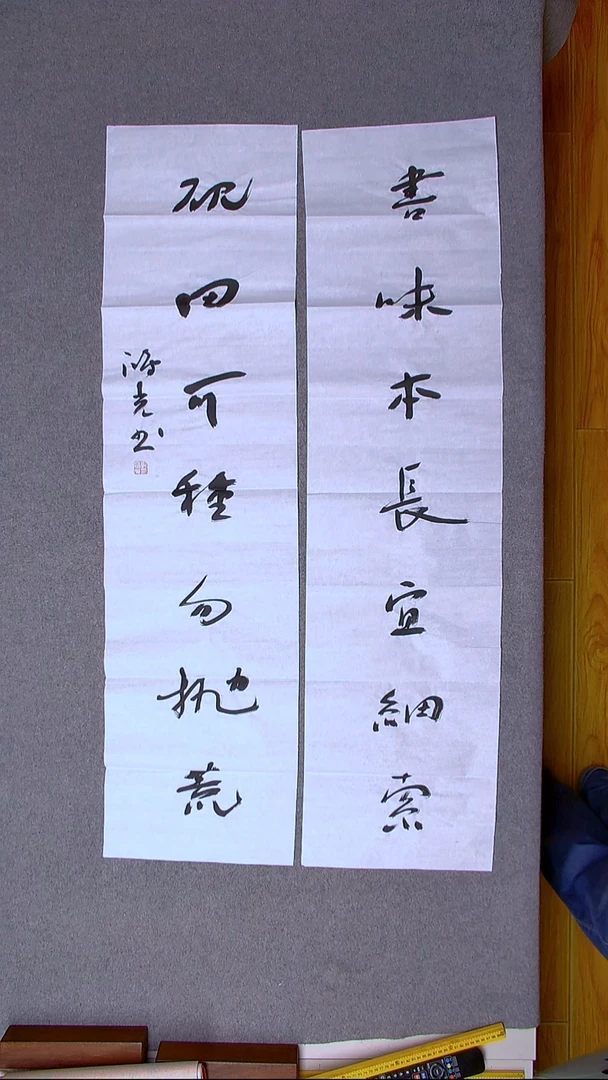 書味本長宜細索
硯田可種勿抛荒
光书